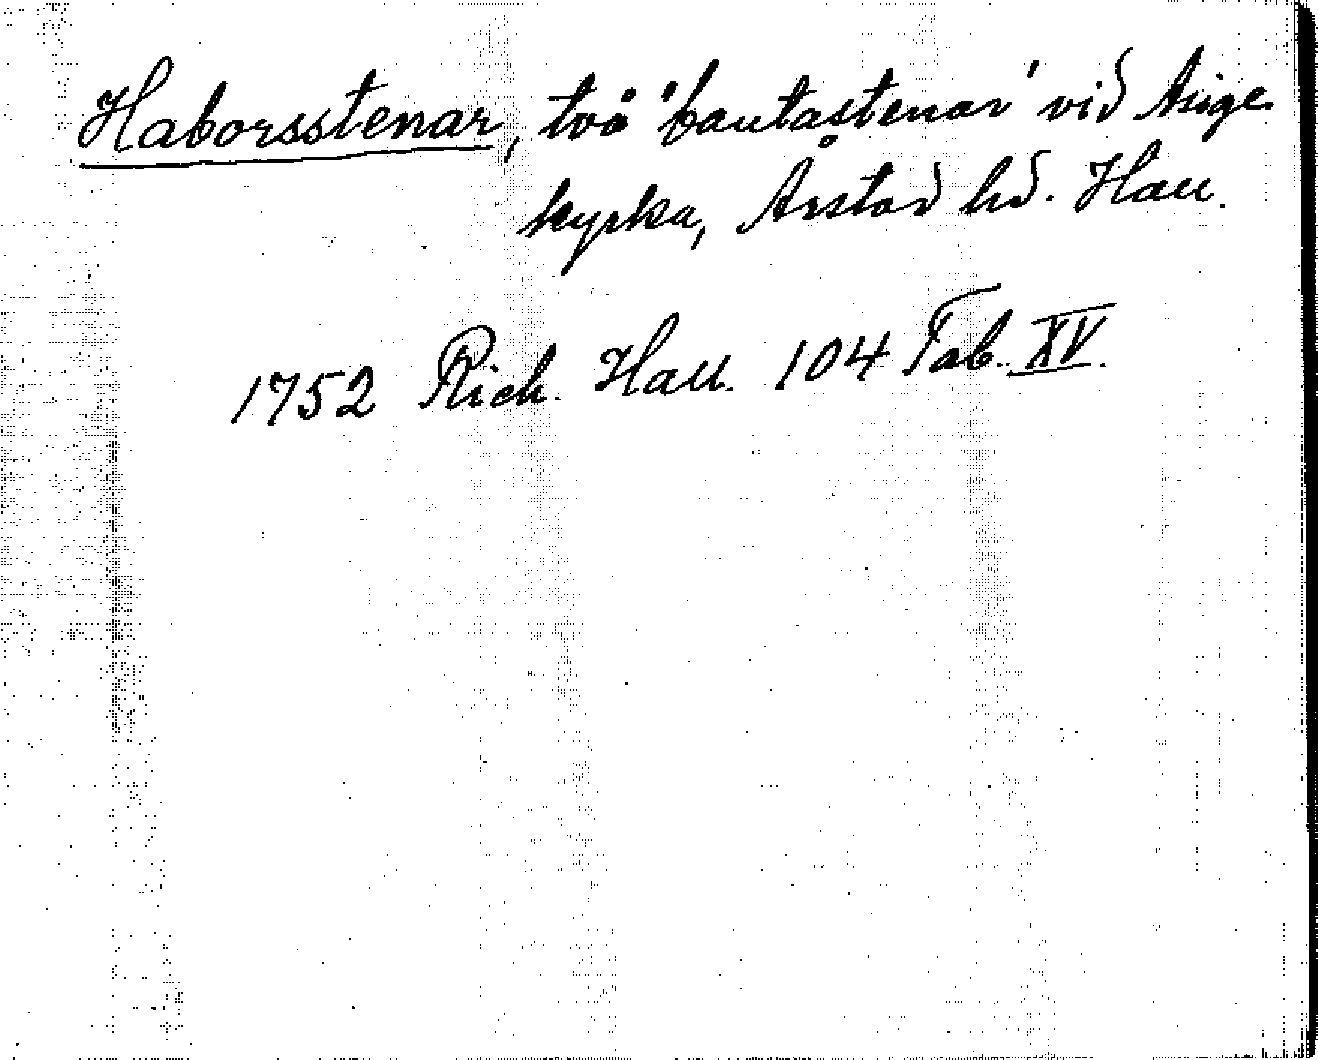 Haborsstenar, två 'bautastenar' vid Asige
kyrka, Årstad hd. Hall.
1752 Rich. Hall. 104 Tab. XV.